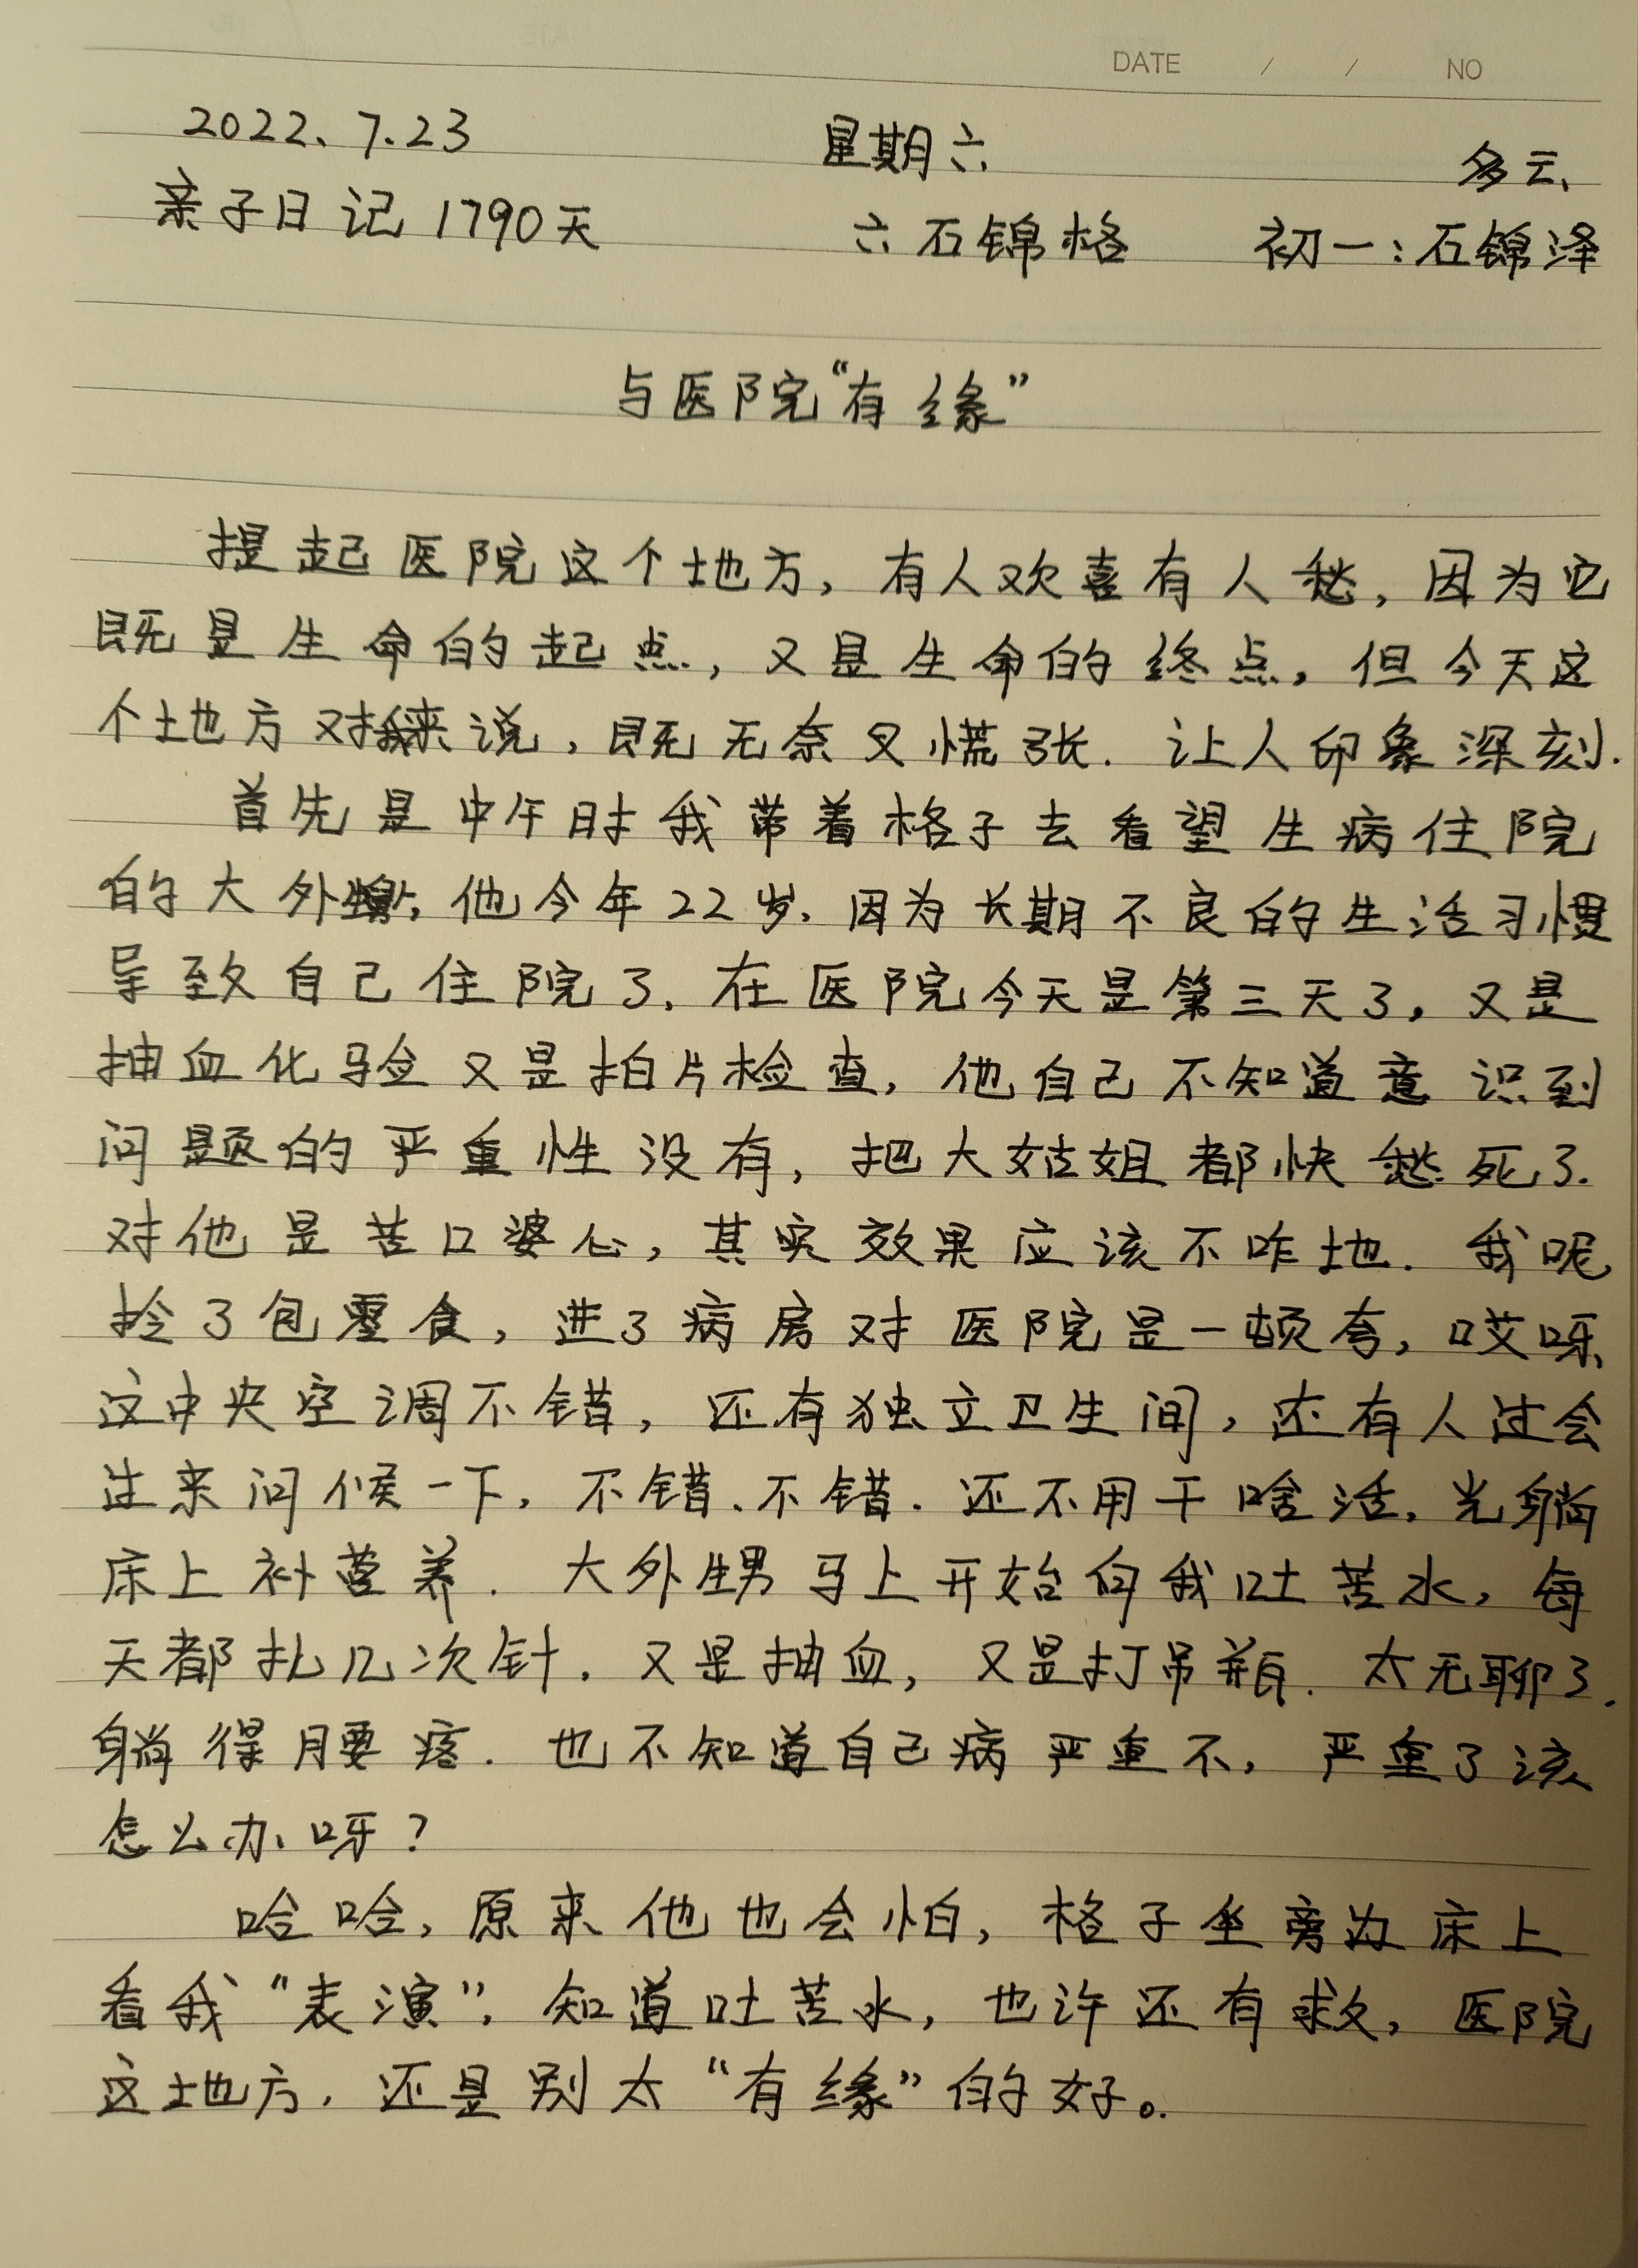 DATE / / NO
2022、7.23 星期六 多云
亲子日记1790天 六石锦格 初一:石锦泽
与医院“有缘”
提起医院这个地方,有人欢喜有人愁,因为它
既是生命的起点,又是生命的终点。但今天这
个地方对我来说,既无奈又慌张.让人印象深刻.
首先是中午时我带着格子去看望生病住院
的大外甥,他今年22岁.因为长期不良的生活习惯
导致自己住院了.在医院今天是第三天了,又是
抽血化验又是拍片检查,他自己不知道意识到
问题的严重性没有,把大姑姐都快愁死了.
对他是苦口婆心,其实效果应该不咋地.我呢
拎了包零食,进了病房对医院是一顿夸,哎呀,
这中央空调不错,还有独立卫生间,还有人过会
过来问候一下,不错、不错.还不用干啥活,光躺
床上补营养.大外甥马上开始向我吐苦水,每
天都扎几次针.又是抽血,又是打吊瓶.太无聊了.
躺得腰疼.也不知道自己病严重不,严重了该
怎么办呀?
哈哈,原来他也会怕,格子坐旁边床上
看我“表演”,知道吐苦水,也许还有救,医院
这地方.还是别太“有缘”的好。